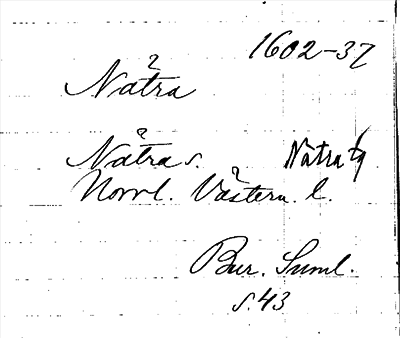 1602-37
Nätra
Nätra s. Nätra tg
Norrl. Västern. l.
Bur. Suml.
s. 43